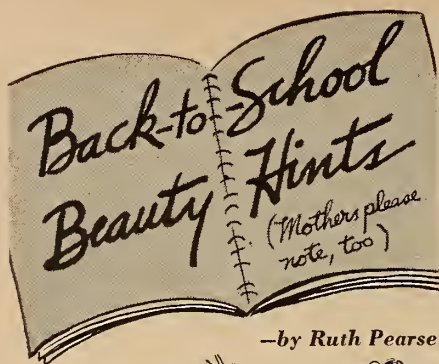 Back-to-School
Beauty Hints
(Mothers please
note, too)
—by Ruth Pearse